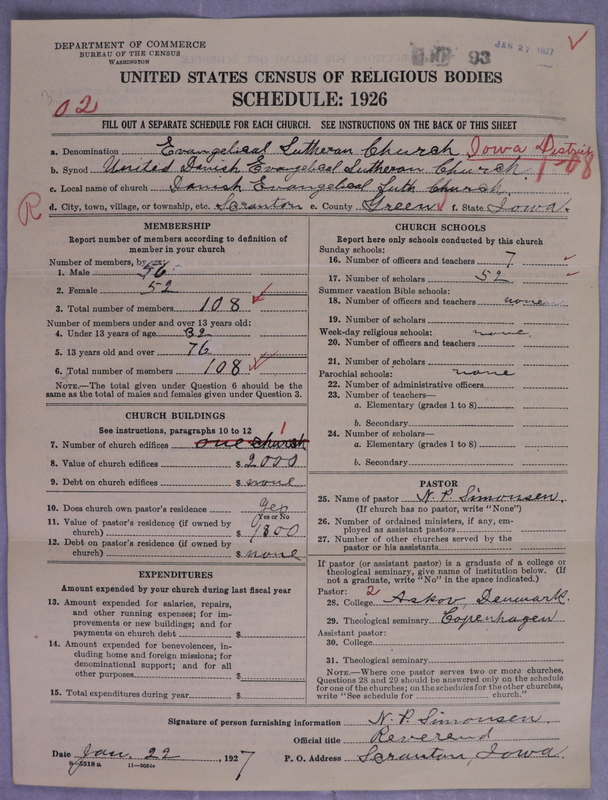 DEPARTMENT OF COMMERCE
BUREAU OF THE CENSUS
WASHINGTON
93
JAN 27 1927
UNITED STATES CENSUS OF RELIGIOUS BODIES
SCHEDULE: 1926
02
FILL OUT A SEPARATE SCHEDULE FOR EACH CHURCH. SEE INSTRUCTIONS ON THE BACK OF THIS SHEET
a. Denomination Evangelical Lutheran Church Iowa District
b. Synod United Danish Evangelical Lutheran Church 1-08
c. Local name of church Danish Evangelical Luth Church.
R
d. City, town, village, or township, etc. Scranton e. County Green f. State Iowa.
MEMBERSHIP
Report number of members according to definition of
member in your church
Number of members, by sex:
1. Male 56
2. Female 52
3. Total number of members 108
Number of members under and over 13 years old:
4. Under 13 years of age 32
5. 13 years old and over 76
6. Total number of members 108
NOTE.—The total given under Question 6 should be the
same as the total of males and females given under Question 3.
CHURCH BUILDINGS
See instructions, paragraphs 10 to 12
7. Number of church edifices one church 1
8. Value of church edifices $ 2000
9. Debt on church edifices $ none
10. Does church own pastor's residence yes
Yes or No
11. Value of pastor's residence (if owned by
church) $ 1800
12. Debt on pastor's residence (if owned by
church) $ none
EXPENDITURES
Amount expended by your church during last fiscal year
13. Amount expended for salaries, repairs,
and other running expenses; for im-
provements or new buildings; and for
payments on church debt $
14. Amount expended for benevolences, in-
cluding home and foreign missions; for
denominational support; and for all
other purposes $
15. Total expenditures during year $
CHURCH SCHOOLS
Report here only schools conducted by this church
Sunday schools:
16. Number of officers and teachers 7
17. Number of scholars 52
Summer vacation Bible schools:
18. Number of officers and teachers none
19. Number of scholars
Week-day religious schools: none
20. Number of officers and teachers
21. Number of scholars
Parochial schools: none
22. Number of administrative officers
23. Number of teachers—
a. Elementary (grades 1 to 8)
b. Secondary
24. Number of scholars—
a. Elementary (grades 1 to 8)
b. Secondary
PASTOR
25. Name of pastor N. P. Simonsen.
(If church has no pastor, write "None")
26. Number of ordained ministers, if any, em-
ployed as assistant pastors
27. Number of other churches served by the
pastor or his assistants
If pastor (or assistant pastor) is a graduate of a college or
theological seminary, give name of institution below. (If
not a graduate, write "No" in the space indicated.)
Pastor: 2
28. College Askov, Denmark.
29. Theological seminary Copenhagen
Assistant pastor:
30. College
31. Theological seminary
NOTE.—Where one pastor serves two or more churches,
Questions 28 and 29 should be answered only on the schedule
for one of the churches; on the schedules for the other churches,
write "See schedule for church."
Signature of person furnishing information N. P. Simonsen.
Official title Reverend
Date Jan. 22, 1927 P. O. Address Scranton, Iowa.
8-5518a